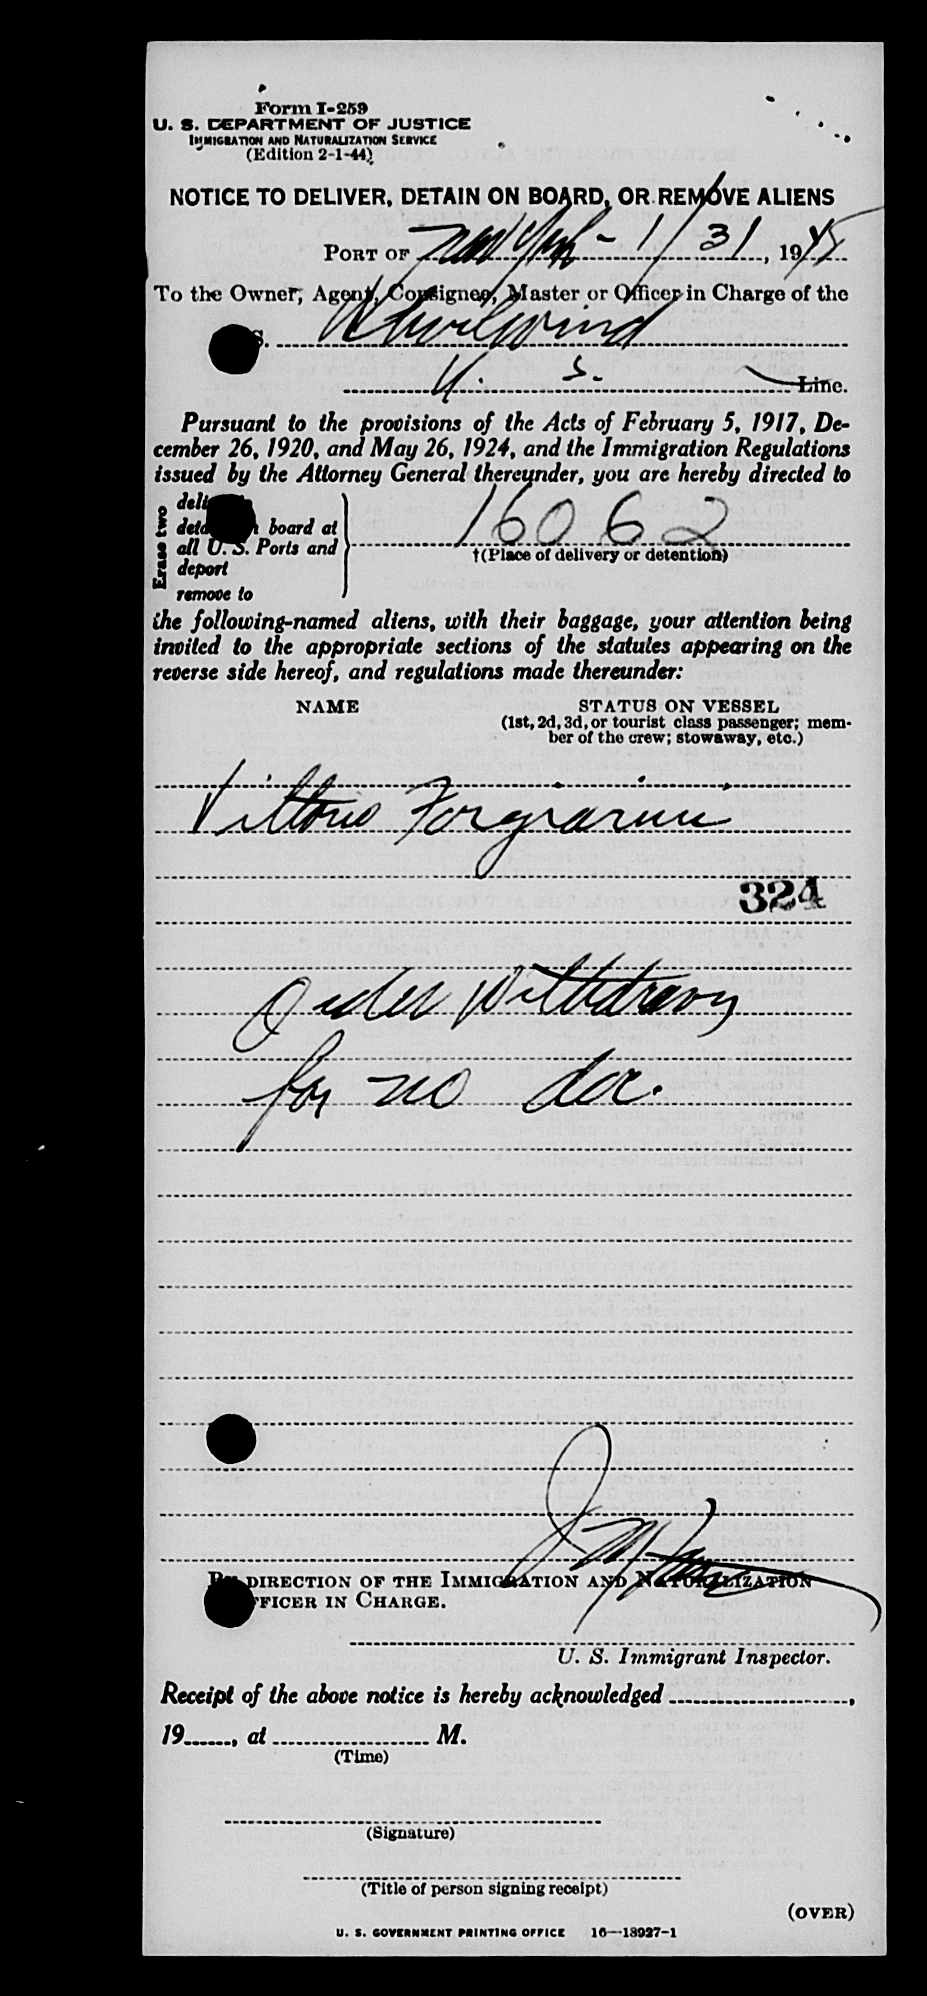 Form I-259
U. S. DEPARTMENT OF JUSTICE
IMMIGRATION AND NATURALIZATION SERVICE
(Edition 2-1-44)
NOTICE TO DELIVER, DETAIN ON BOARD, OR REMOVE ALIENS
PORT OF New York - 1/31, 1945
To the Owner, Agent, Consignee, Master or Officer in Charge of the
S. Whirlwind
U. S. Line.
Pursuant to the provisions of the Acts of February 5, 1917, De-
cember 26, 1920, and May 26, 1924, and the Immigration Regulations
issued by the Attorney General thereunder, you are hereby directed to
Erase two
board at
all U. S. Ports and
deport
remove to
16062
†(Place of delivery or detention)
the following-named aliens, with their baggage, your attention being
invited to the appropriate sections of the statutes appearing on the
reverse side hereof, and regulations made thereunder:
NAME STATUS ON VESSEL
(1st, 2d, 3d, or tourist class passenger; mem-
ber of the crew; stowaway, etc.)
Vittorio Forgiarini
324
Order Withdrawn
for no doc.
BY DIRECTION OF THE IMMIGRATION AND NATURALIZATION
OFFICER IN CHARGE.
U. S. Immigrant Inspector.
Receipt of the above notice is hereby acknowledged ,
19 , at M.
(Time)
(Signature)
(Title of person signing receipt)
(OVER)
U. S. GOVERNMENT PRINTING OFFICE 16—13927-1